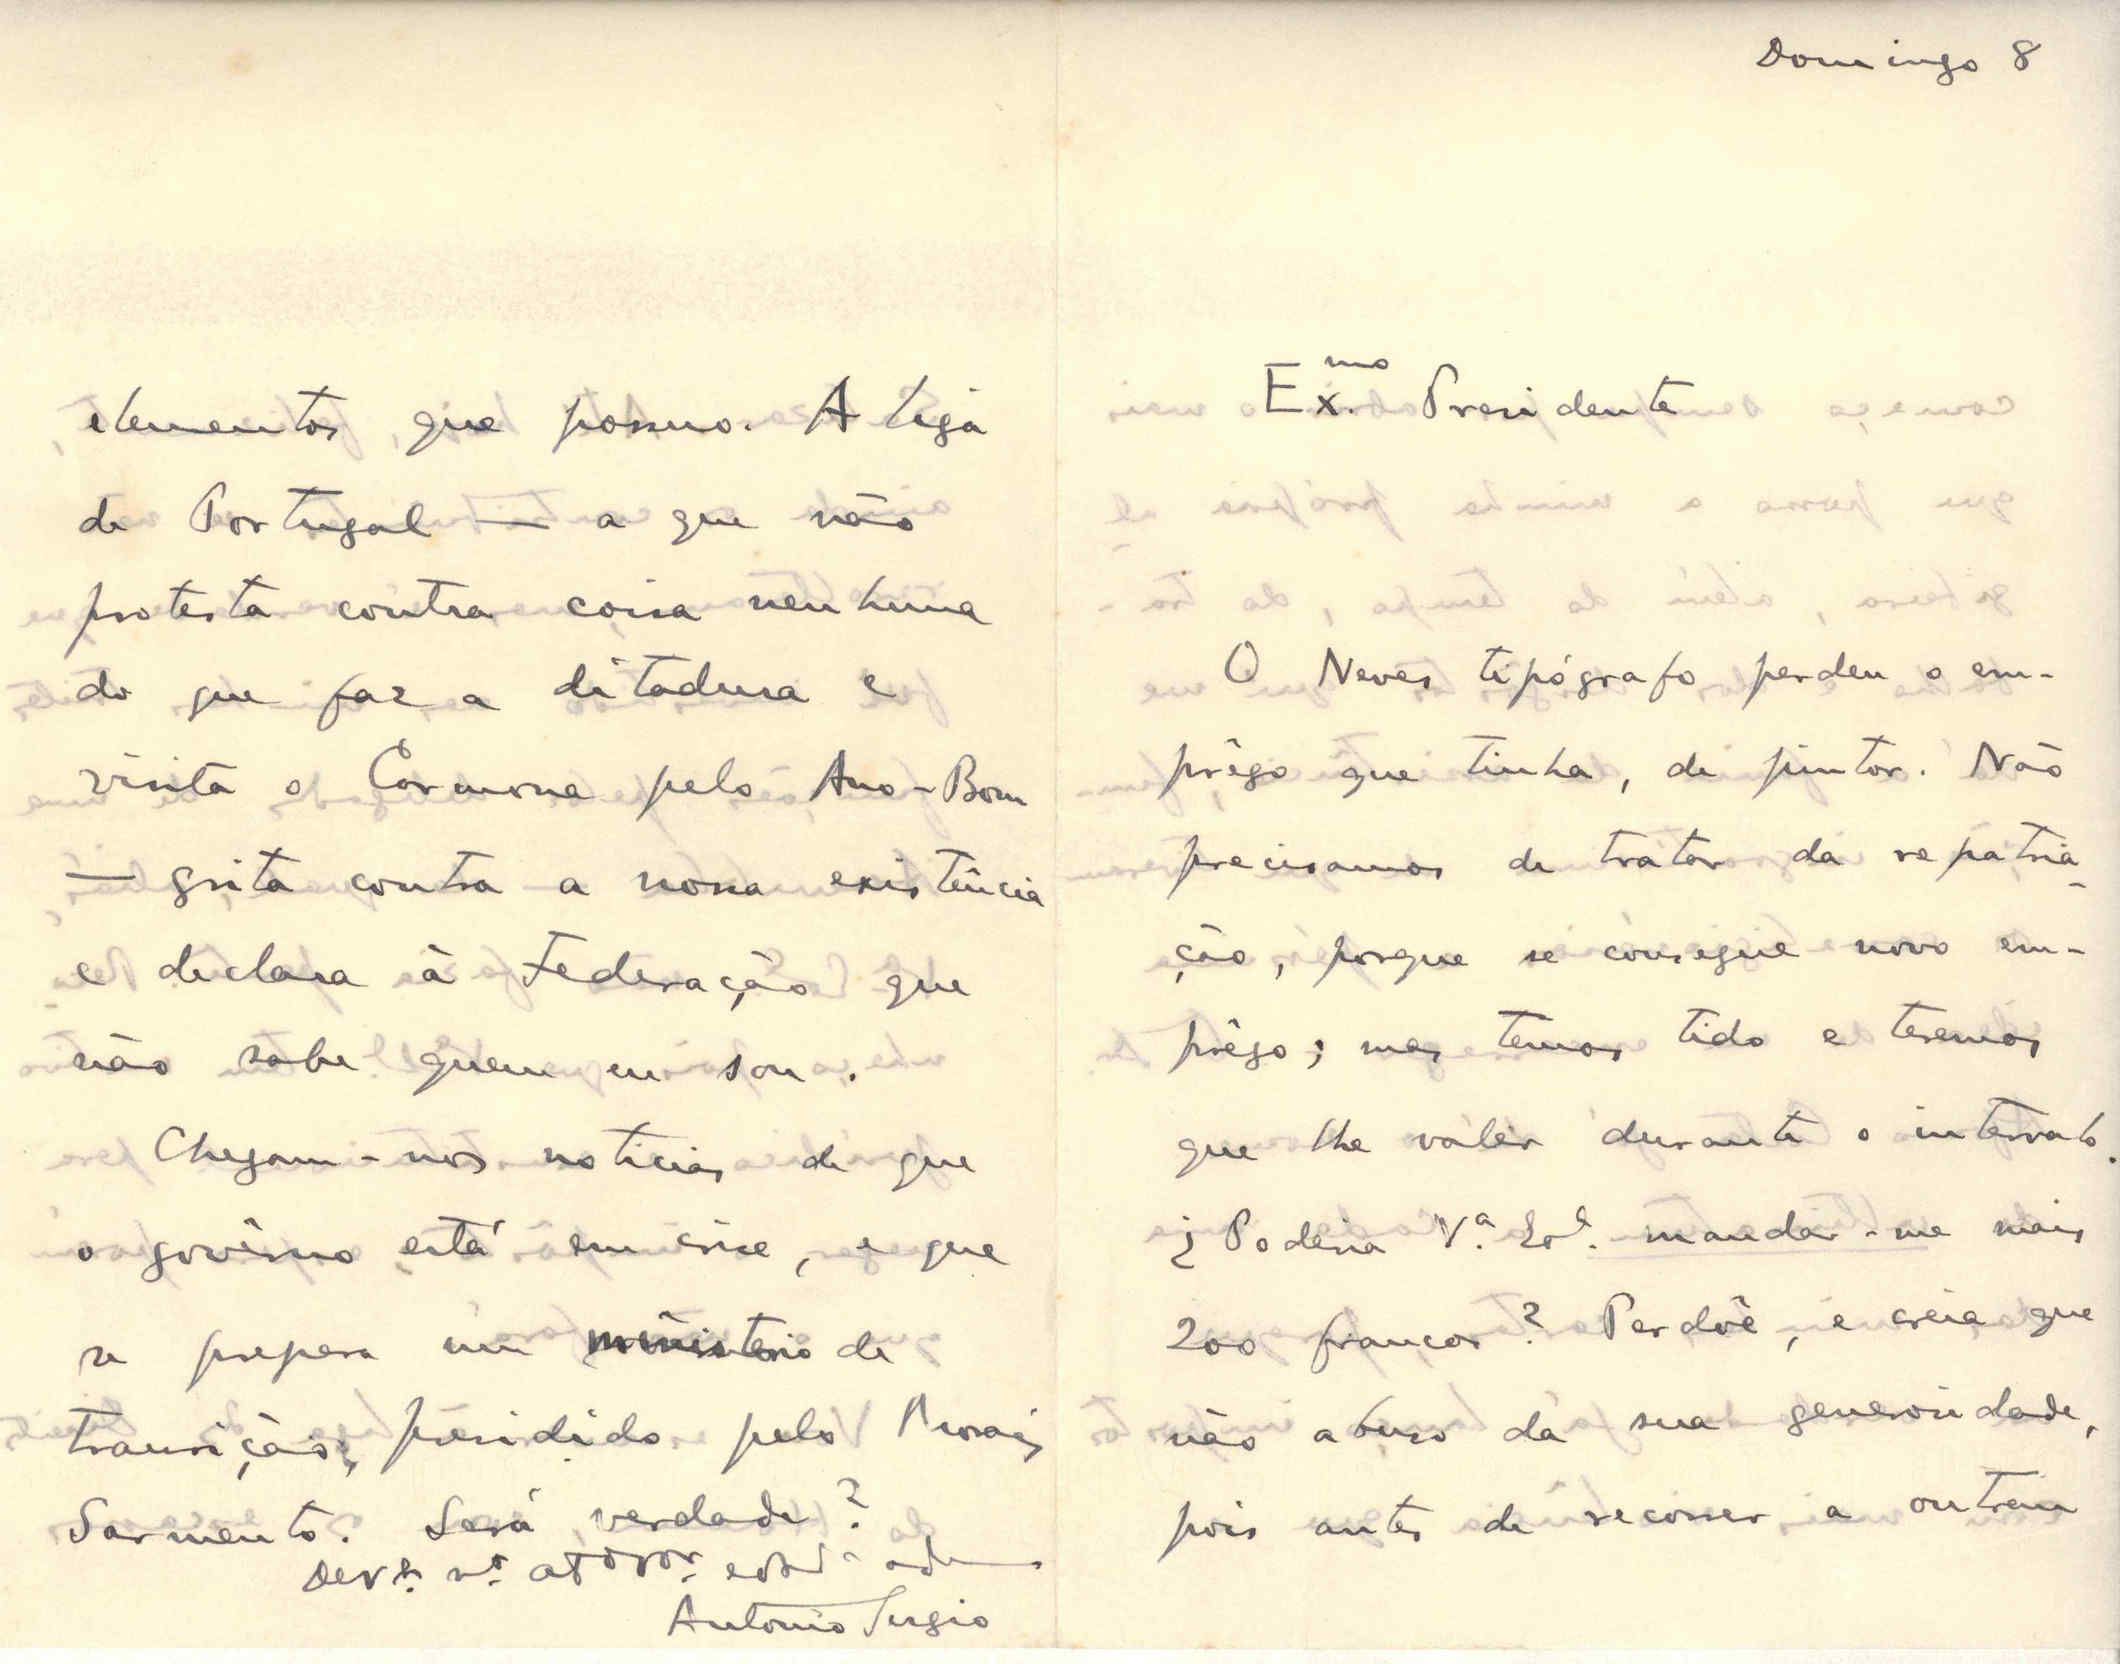 Domingo 8
Ex.mo Presidente
O Neves tipógrafo perdeu o em-
prêgo que tinha, de pintor. Não
precisamos de tratar da repatria-
ção, porque se consegue novo em-
prêgo; mas temos tido e teremos
que lhe valer durante o intervalo.
¿Poderia V.ª Ex.ª mandar-me mais
200 francos? Perdôe, e creia que
não abuso da sua generosidade,
pois antes de recorrer a outrem
elementos que possuo. A Liga
de Portugal — a que não
protesta contra coisa nenhuma
do que faz a ditadura e
visita o Carmona pelo Ano-Bom
— grita contra a nossa existência
e declara à Federação que
não sabe quem eu sou.
Chegam-nos noticias de que
o govêrno está em crise, e que
se prepara um ministerio de
transição, presidido pelo Morais
Sarmento. Será verdade?
António Sergio